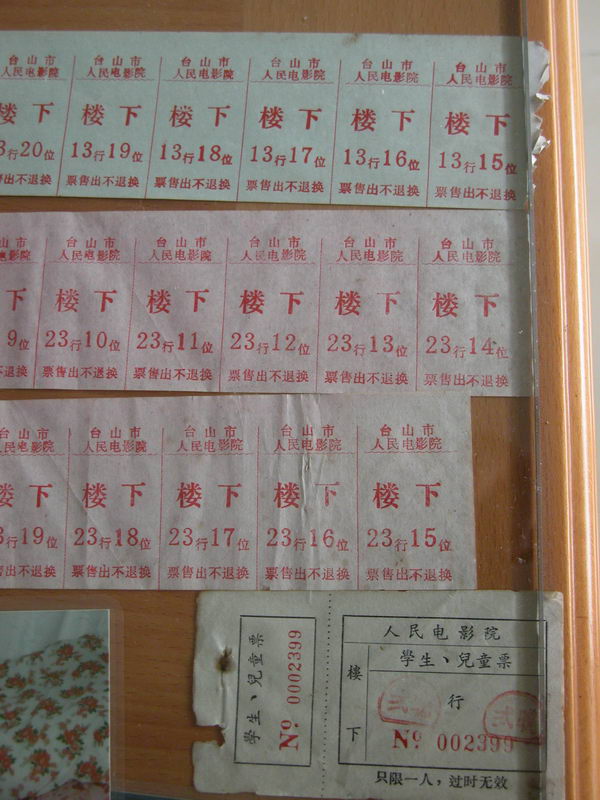 台山市
人民电影院
楼下
3行20位
票售出不退换
台山市
人民电影院
楼下
13行19位
票售出不退换
台山市
人民电影院
楼下
13行18位
票售出不退换
台山市
人民电影院
楼下
13行17位
票售出不退换
台山市
人民电影院
楼下
13行16位
票售出不退换
台山市
人民电影院
楼下
13行15位
票售出不退换
山市
电影院
下
9位
不退换
台山市
人民电影院
楼下
23行10位
票售出不退换
台山市
人民电影院
楼下
23行11位
票售出不退换
台山市
人民电影院
楼下
23行12位
票售出不退换
台山市
人民电影院
楼下
23行13位
票售出不退换
台山市
人民电影院
楼下
23行14位
票售出不退换
台山市
人民电影院
楼下
3行19位
售出不退换
台山市
人民电影院
楼下
23行18位
票售出不退换
台山市
人民电影院
楼下
23行17位
票售出不退换
台山市
人民电影院
楼下
23行16位
票售出不退换
台山市
人民电影院
楼下
23行15位
票售出不退换
學生、兒童票
No 0002399
人民电影院
學生、兒童票
樓下
行
No 002399
只限一人，过时无效